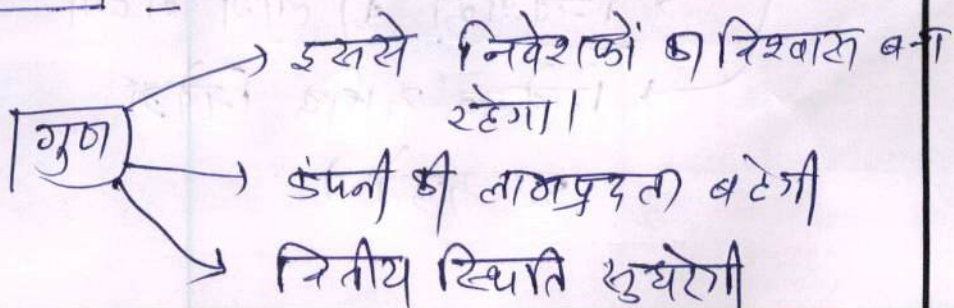 इससे निवेशकों का विश्वास बना
रहेगा।
गुण
कंपनी की लाभप्रदता बढेगी
वित्तीय स्थिति सुधरेगी